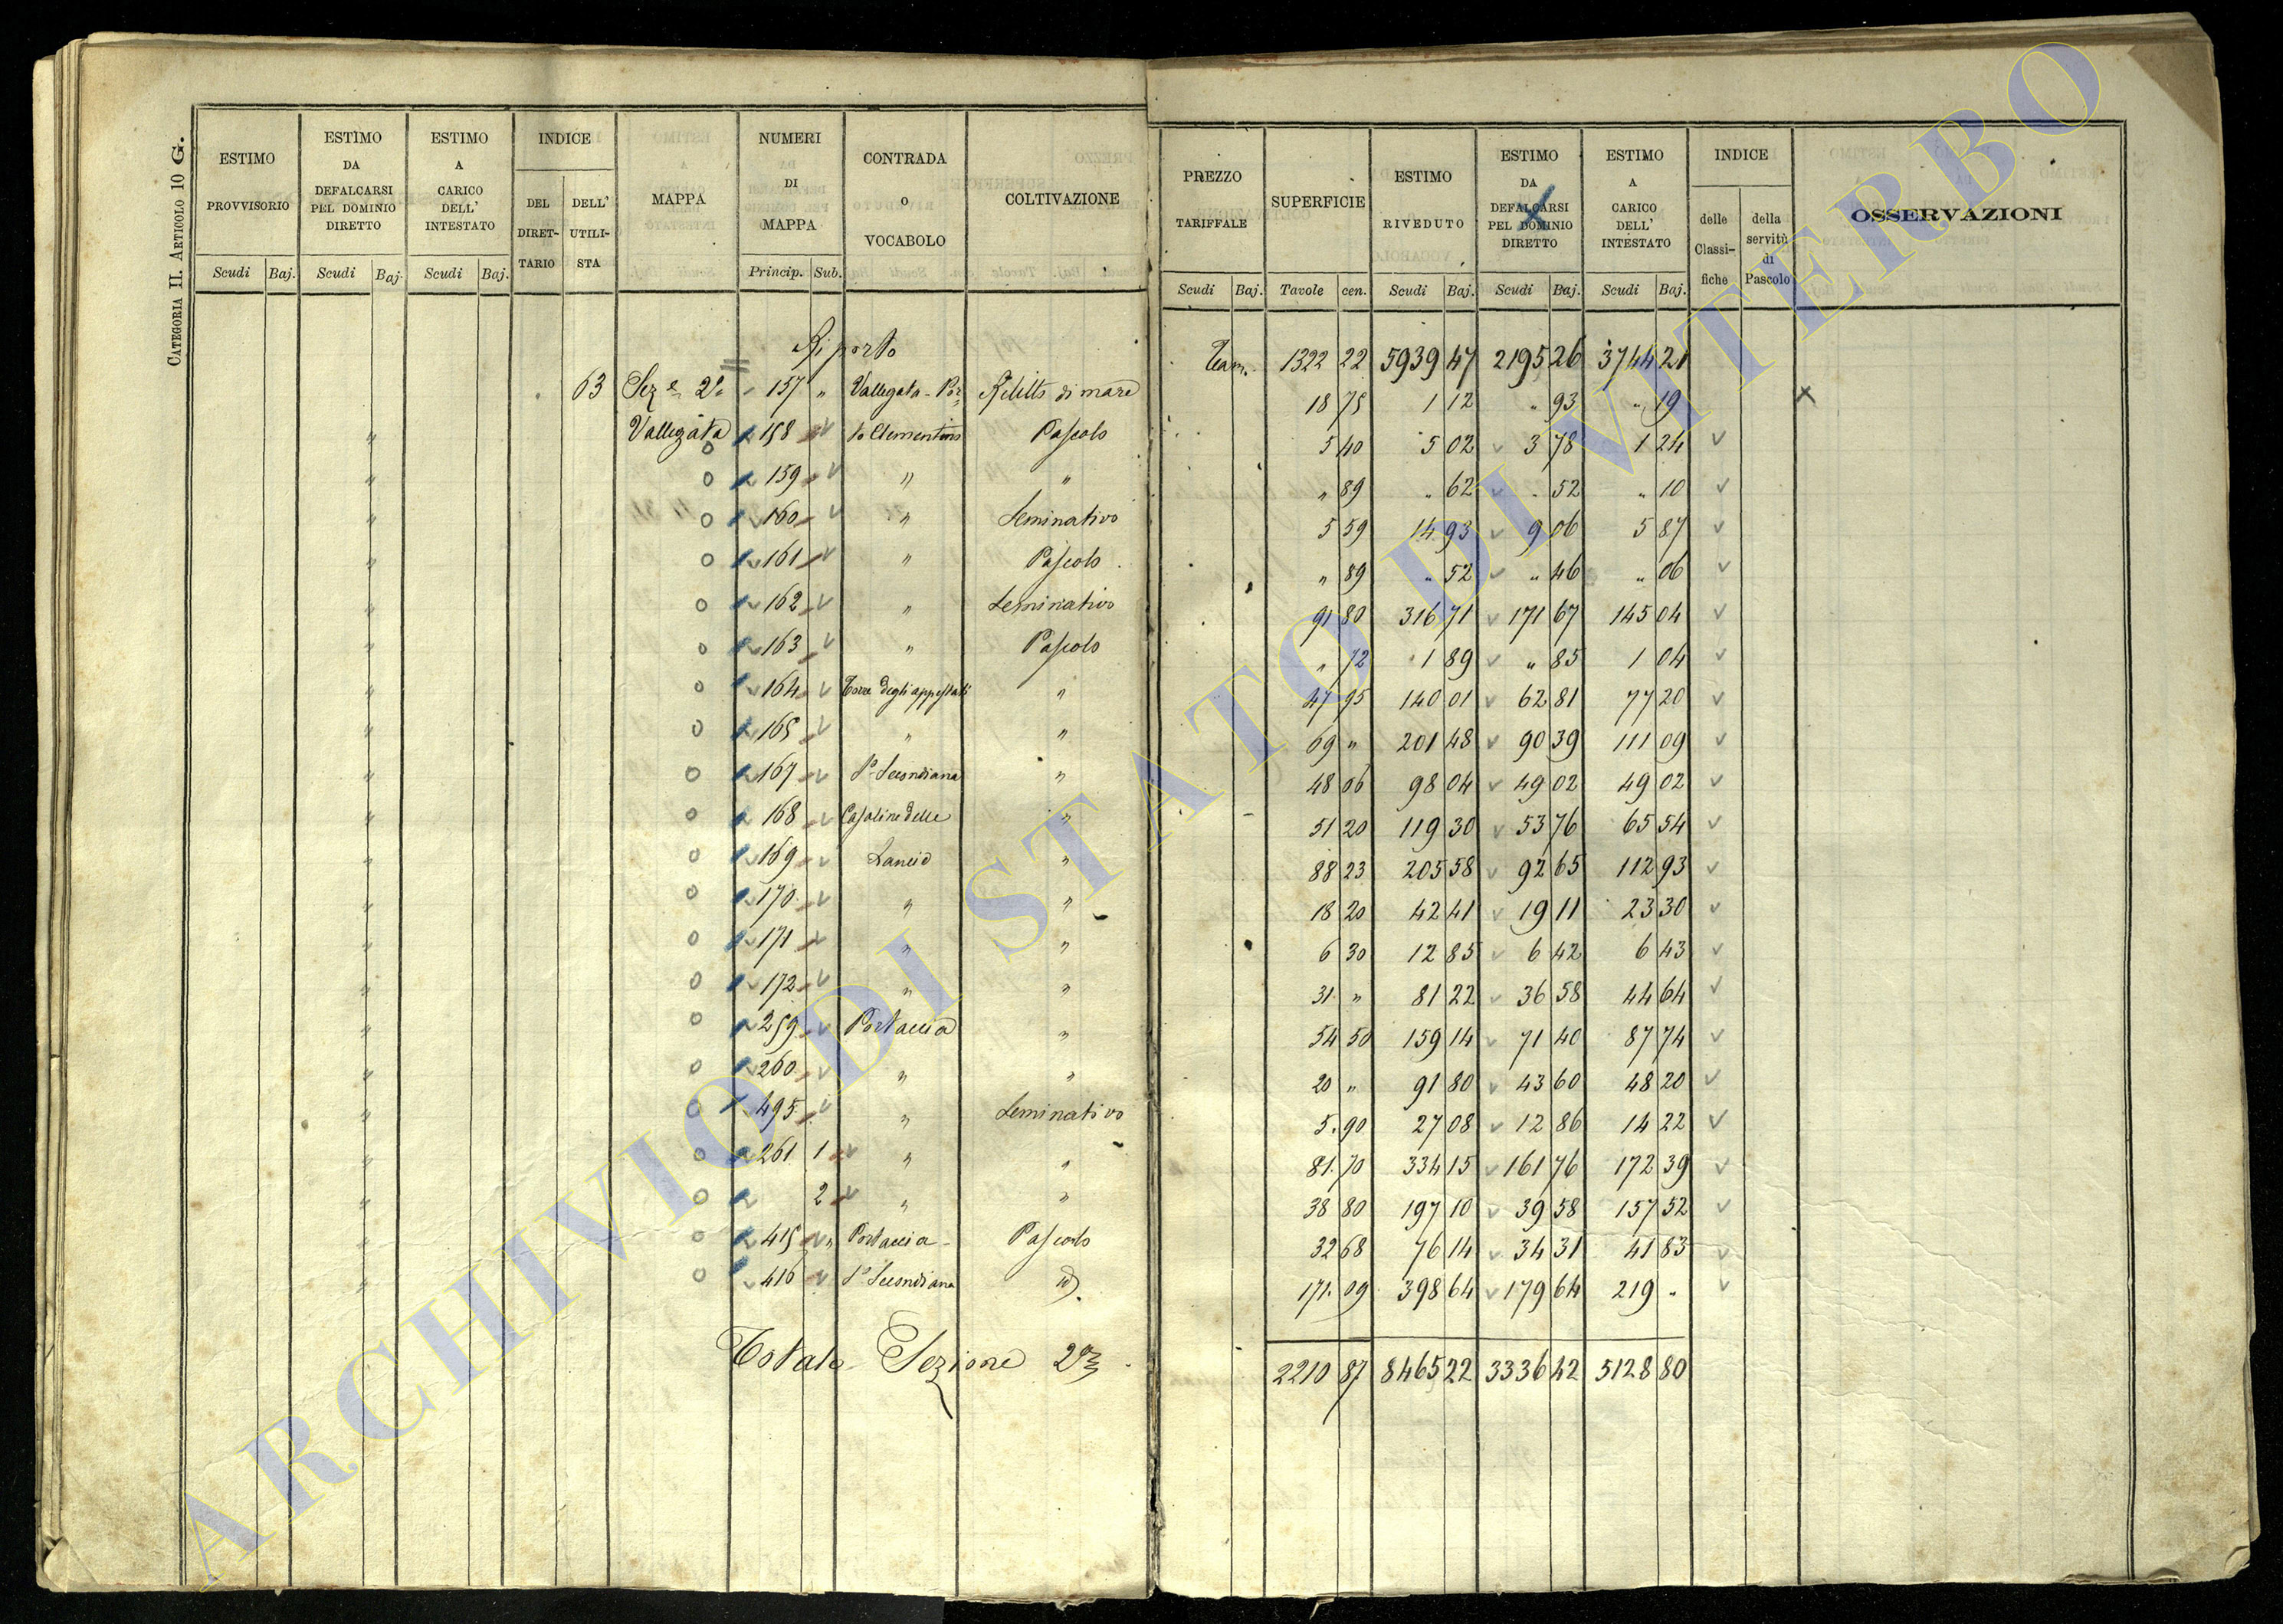 CATEGORIA II. ARTICOLO 10 G.
ESTIMO PROVVISORIO | ESTIMO DA DEFALCARSI PEL DOMINIO DIRETTO | ESTIMO A CARICO DELL' INTESTATO | INDICE | MAPPA | NUMERI DI MAPPA | CONTRADA O VOCABOLO | COLTIVAZIONE | PREZZO TARIFFALE | SUPERFICIE | ESTIMO RIVEDUTO | ESTIMO DA DEFALCARSI PEL DOMINIO DIRETTO | ESTIMO A CARICO DELL' INTESTATO | INDICE | OSSERVAZIONI
DEL DIRETTARIO | DELL' UTILISTA | delle Classifiche | della servitù di Pascolo
Scudi | Baj. | Scudi | Baj. | Scudi | Baj. | Princip. | Sub. | Scudi | Baj. | Tavole | cen. | Scudi | Baj. | Scudi | Baj. | Scudi | Baj.
Riporto | 1322 22 | 5939 47 | 2195 26 | 3744 21
63 | Sez e 2a | 157 " | Vallegata - Por | Relitto di mare | 18 75 | 1 12 | " 93 | " 19 | x
" | Vallegata | 158 | to Clementino | Pascolo | 5 40 | 5 02 | 3 78 | 1 24
" | 159 | " | " | " 89 | " 62 | " 52 | " 10
" | 160 | " | Seminativo | 5 59 | 14 93 | 9 06 | 5 87
" | 161 | " | Pascolo | " 89 | " 52 | " 46 | " 06
" | 162 | " | Seminativo | 91 80 | 316 71 | 171 67 | 145 04
" | 163 | " | Pascolo | " 72 | 1 89 | " 85 | 1 04
" | 164 | Torre degli appestati | " | 47 95 | 140 01 | 62 81 | 77 20
" | 165 | " | " | 69 " | 201 48 | 90 39 | 111 09
" | 167 | Sa Secondiana | " | 48 06 | 98 04 | 49 02 | 49 02
" | 168 | Casaline delle | " | 51 20 | 119 30 | 53 76 | 65 54
" | 169 | Lancie | " | 88 23 | 205 58 | 92 65 | 112 93
" | 170 | " | " | 18 20 | 42 41 | 19 11 | 23 30
" | 171 | " | " | 6 30 | 12 85 | 6 42 | 6 43
" | 172 | " | " | 31 " | 81 22 | 36 58 | 44 64
" | 259 | Portaccia | " | 54 50 | 159 14 | 71 40 | 87 74
" | 260 | " | " | 20 " | 91 80 | 43 60 | 48 20
" | 495 | " | Seminativo | 5.90 | 27 08 | 12 86 | 14 22
" | 261 1 | " | " | 81.70 | 334 15 | 161 76 | 172 39
" | 2 | " | " | 38 80 | 197 10 | 39 58 | 157 52
" | 415 " | Portaccia | Pascolo | 32 68 | 76 14 | 34 31 | 41 83
416 | Sa Secondiana | id. | 171.09 | 398 64 | 179 64 | 219 "
Totale Sezione 2a | 2210 87 | 8465 22 | 3336 42 | 5128 80
ARCHIVIO DI STATO DI VITERBO